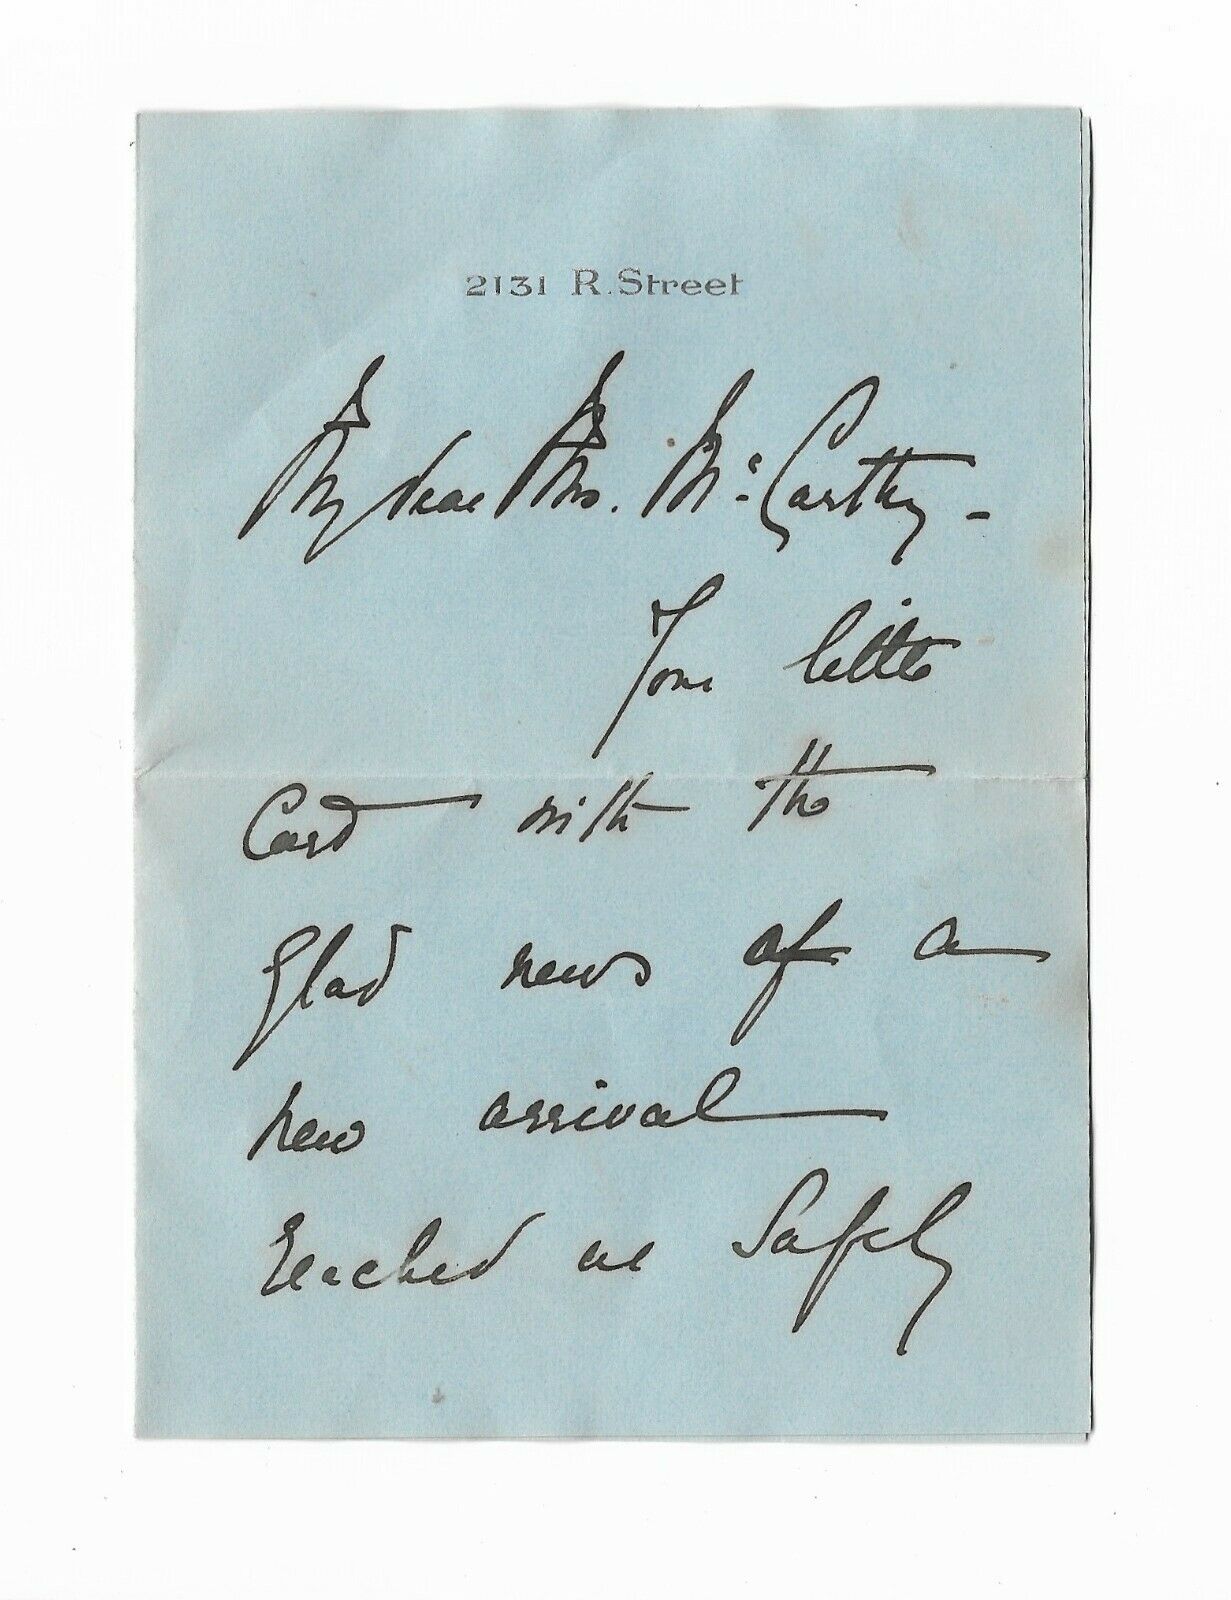 2131 R. Street
My dear Mrs. McCarthy -
Your little
Card with the
glad news of a
new arrival
reached me safely